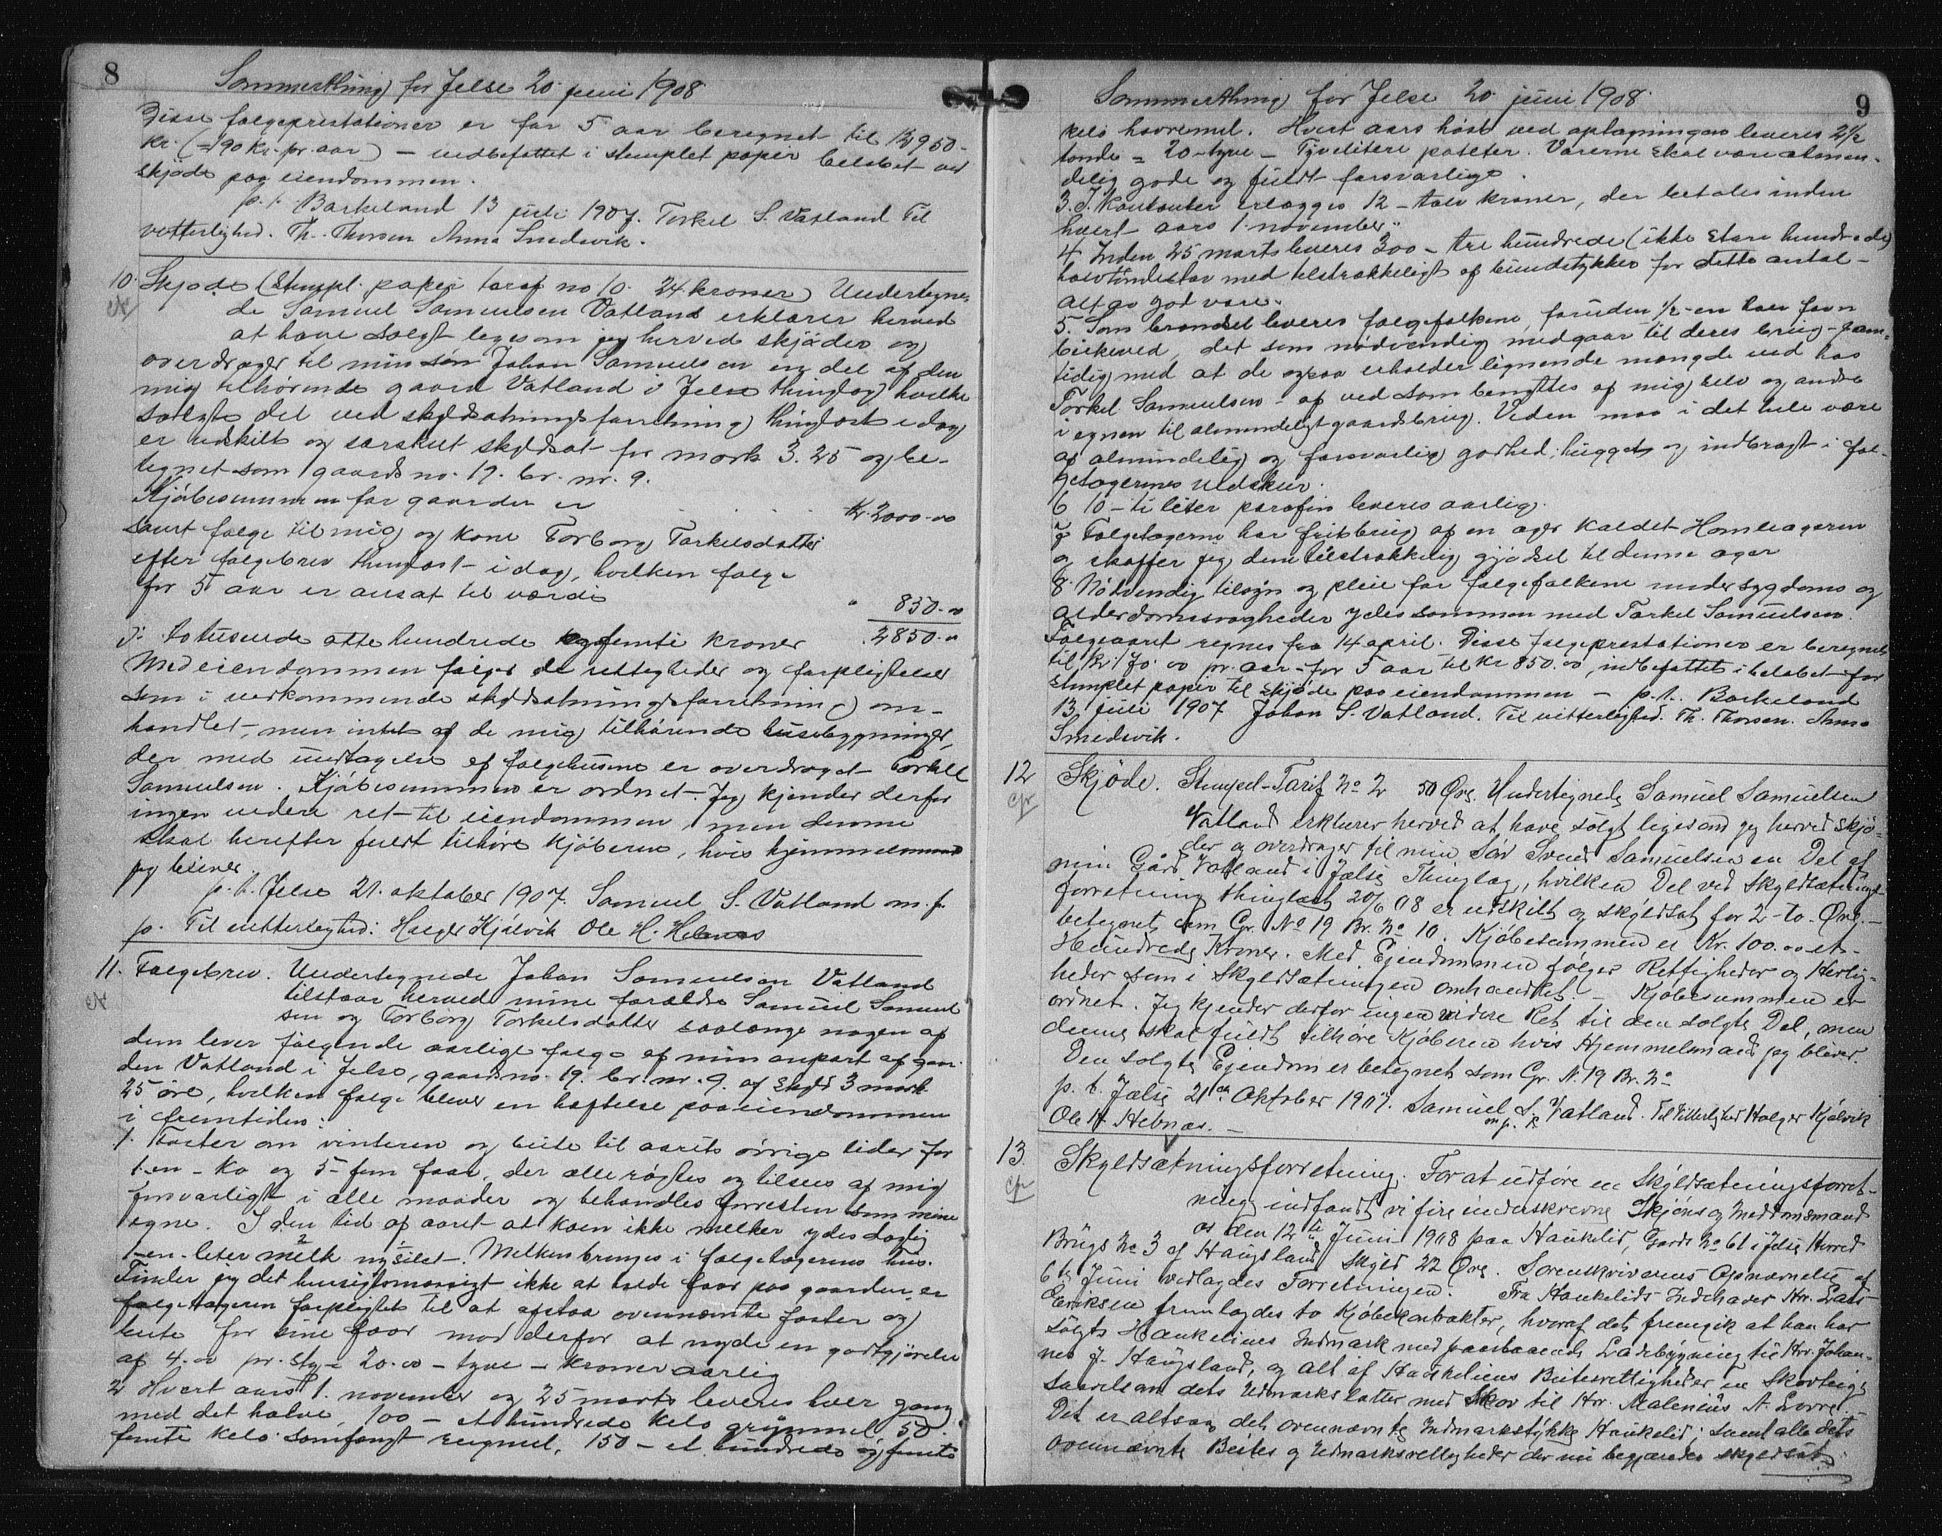 8
Sommerthing for Jelse 20 juni 1908
Disse folgeprestationer er for 5 aar beregnet til kr 950-
kr. (= 190 kr. pr. aar) - indbefattet i stemplet papir beløbet ved
skjøde paa eiendommen.
p.t. Barkeland 13 juli 1907. Torkel S. Vatland Til
vitterlighed. Th. Thorsen Anna Smedsvik.
10. Skjøde (Stempl. papir taraf no 10. 24 kroner) Undertegne-
de Samuel Samuelsen Vatland erklærer herved
at have solgt ligesom jeg herved skjøder og
overdrager til min søn Johan Samuelsen en del af den
mig tilhørende gaard Vatland i Jelse thinglag hvilke
solgte del ved skyldsætningsforretning thinglæst idag
er udskilt og særskilt skyldsat for mark 3.25 og be-
tegnet som gaards no. 19. br. nr. 9.
Kjøbesummen for gaarden er . . . . Kr. 2000.00
samt folge til mig og kone Torborg Torkelsdatter
efter folgebrev thinglæst idag, hvilken folge
for 5 aar er ansat til værdi " 850.00
2850.00
j: totusende otte hundrede og femti kroner
Med eiendommen følger de rettigheder og forpligtelser
som i vedkommende skyldsætningsforretning om-
handlet, men intet af de mig tilhørende husebygninger,
der med undtagelse af folgehusene er overdraget Torkel
Samuelsen. Kjøbesummen er ordnet. Jeg kjender derfor
ingen videre ret til eiendommen, men denne
skal herefter fuldt tilhøre kjøberen, hvis hjemmelsmand
jeg bliver
p.t. Jelse 21. oktober 1907. Samuel S. Vatland m. p.
p. Til vitterlighed: Holger Kjølvik Ole H. Hebnes
11. Folgebrev. Undertegnede Johan Samuelsen Vatland
tilstaar herved mine forældre Samuel Samuel
sen og Torborg Torkelsdatter saalænge nogen af
dem lever følgende aarlige folge af min anpart af gaar-
den Vatland i Jelse, gaardsno. 19. br. nr. 9. af skyld 3 mark
25 øre, hvilken folge bliver en heftelse paa eiendommen
i fremtiden:
1. Foster om vinteren og beite til aarets øvrige tider for
1-en- ko og 5-fem faar, der alle røgtes og tilsees af mig
forsvarligt i alle maader og behandles forresten som mine
egne. I den tid af aaret at koen ikke melker ydes daglig
1-en- liter melk nysilet. Melken bringes i folgetagernes hus.
Finder jeg det hensigtsmæssigt ikke at holde faar paa gaarden, er
folgetageren forpligtet til at afstaa ovennævnte foster og
beite for sine faar mod derfor at nyde en godtgjørelse
af 4.00 pr. sty = 20.00 - tyve - kroner aarlig
2 Hvert aars 1. november og 25 marts leveres hver gang
med det halve, 100 - et hundrede kelo grynmel, 50.
femti kelo somfangt rugmel, 150 - et hundrede og femti
9
Sommerthing for Jelse 20 juni 1908
kelo havremel. Hvert aars høst ved optagningen leveres 2½
tønde = 20-tyve- Tyvelitere poteter. Varerne skal være almin-
delig gode og fuldt forsvarlige.
3. I Kontanter erlægges 12 - tolv kroner, der betales inden
hvert aars 1. november.
4 Inden 25 marts leveres 300 - tre hundrede (ikke store hundrede)
halvtøndestav med tilstrækkeligt af bundstykker for dette antal -
alt av god vare.
5. Som brændsel leveres folgefolkene, foruden ½-en halv favn
birkeved, det som nødvendig medgaar til deres brug - sam-
tidig med at de ogsaa erholder lignende mængde ved hos
Torkel Samuelsen - af ved som benyttes af mig selv og andre
i egnen til almindeligt gaardsbrug. Veden maa i det hele være
af almindelig og forsvarlig godhed; hugget og indbragt i fol-
getagernes vedskur.
6 10 - ti liter parafin leveres aarlig.
7 Folgetagerne har fritbrug af en ager kaldet Homleageren
og skaffer jeg dem tilstrækkelig gjødsel til denne ager
8. Nødvendig tilsyn og pleie for folgefolkene under sygdoms og
alderdomssvagheder ydes sammen med Torkel Samuelsen.
Folgeaaret regnes fra 14 april. Disse folgeprestationer er beregnet
til kr. 170.00 pr. aar - for 5 aar til kr 850.00, indbefattet i beløbet for
stemplet papir til skjøde paa eiendommen - p.t. Barkeland
13 juli 1907 Johan S. Vatland. Til vitterlighed. Th. Thorsen. Anna
Smedsvik.
12 Skjøde. Stempel-Tarif No 2 50 Øre. Undertegnede Samuel Samuelsen
Vatland erklærer herved at have solgt ligesom jeg herved skjø-
der og overdrager til min Søn Svend Samuelsen en Del af
min Gård Vatland i Jælse Thinglag, hvilken Del ved Skyldsætnings-
forretning thinglæst 20/6 08 er udskilt og skyldsat for 2-to- Øre -
betegnet som Gr. No 19 Br. No 10. Kjøbesummen er Kr. 100.00 et-
Hundrede Kroner. Med Ejendommen følger Rettigheder og Herlig-
heder som i Skyldsætningen omhandlet. - Kjøbesummen er
ordnet. Jeg kjender derfor ingen videre Ret til den solgte Del, men
denne skal fuldt tilhøre Kjøberen hvis Hjemmelsmand jeg bliver.
Den solgte Ejendom er betegnet som Gr. N. 19 Br. No
p. t. Jælse 21de Oktober 1907. Samuel S. Vatland. Til Vitterlighed Holger Kjølvik
m. p.
Ole H. Hebnes. -
13. Skyldsætningsforretning. For at udføre en Skyldsætningsforret-
ning indfandt vi fire underskrevne Skjøns og Meddomsmænd
os den 12te Juni 1908 paa Haukelid, Gards No 61 i Jelse Herred
Brugs No 3 af Haugsland Skyld 22 Øre. Sorenskriverens Opnævnelse af
6te Juni vedlagdes Forretningen. Fra Haukelids Indehaver Hr. Lars
Eeriksen fremlagdes to Kjøbekontrakter, hvoraf det fremgik at han har
solgt Haukeliens Indmark med paastaaende Ladebygning til Hr. Johan-
nes J. Haugsland, og alt af Haukeliens Beitesrettigheder en Skovteig
saavelsom dets Udmarkslotter med Skov til Hr. Malenius A. Lovre. -
Det er altsaa det ovennævnte Indmarkstykke Haukelid, samt alle dets
ovennævnte Beites og Udmarksrettigheder der nu begjæredes skyldsat